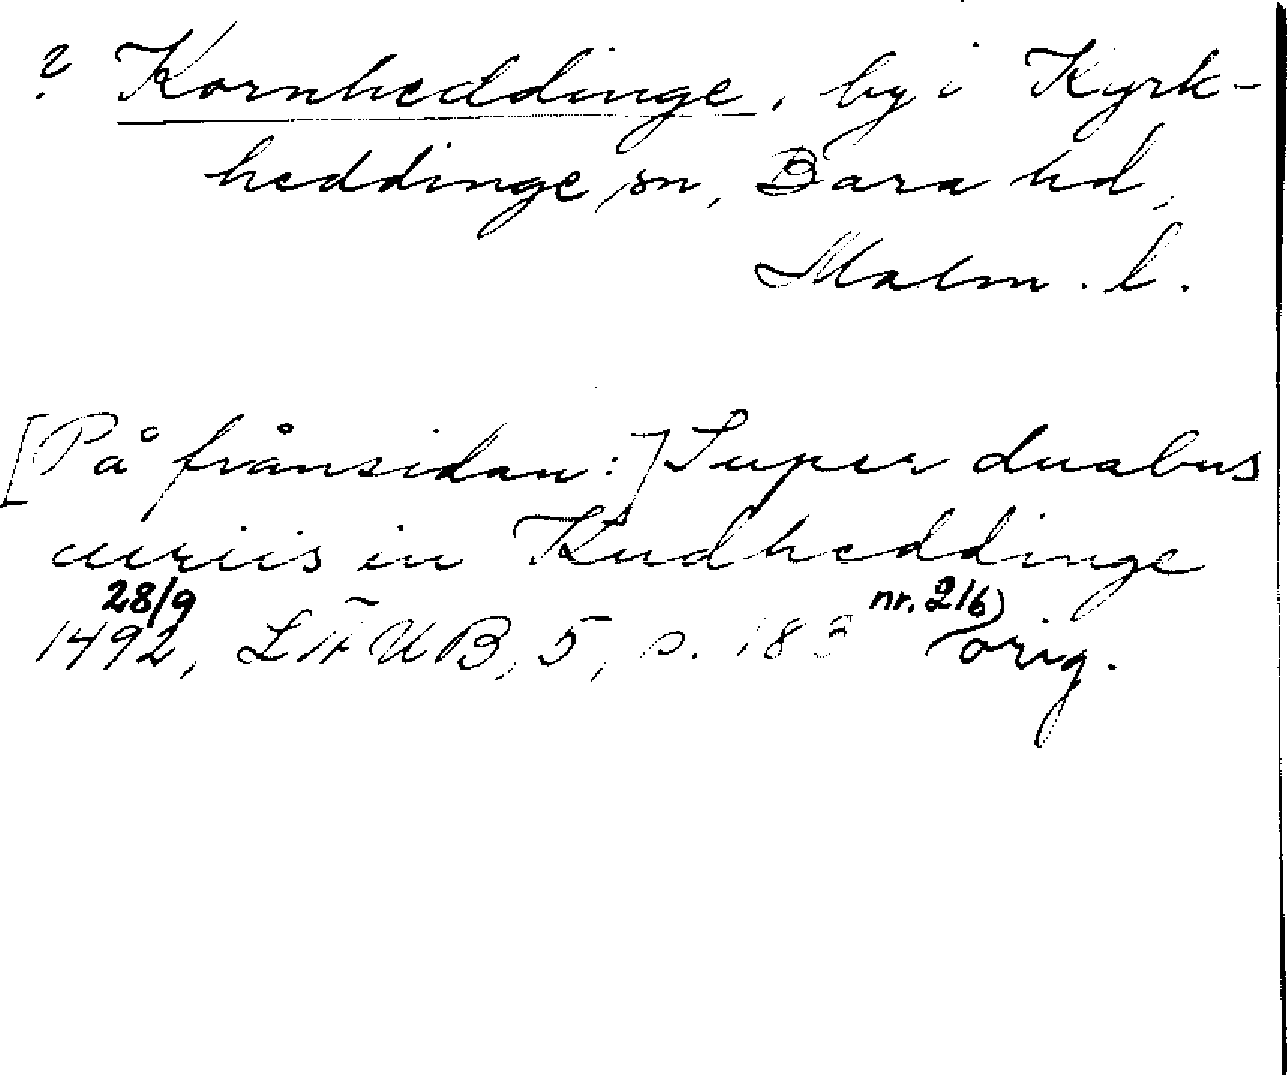 ? Kornheddinge, by i Kyrk-
heddinge sn, Bara hd,
Malm. l.
[På frånsidan:] Super duabus
curiis in Kudheddinge
28/9 nr. 216)
1492, LÄUB, 5, s. 183 orig.